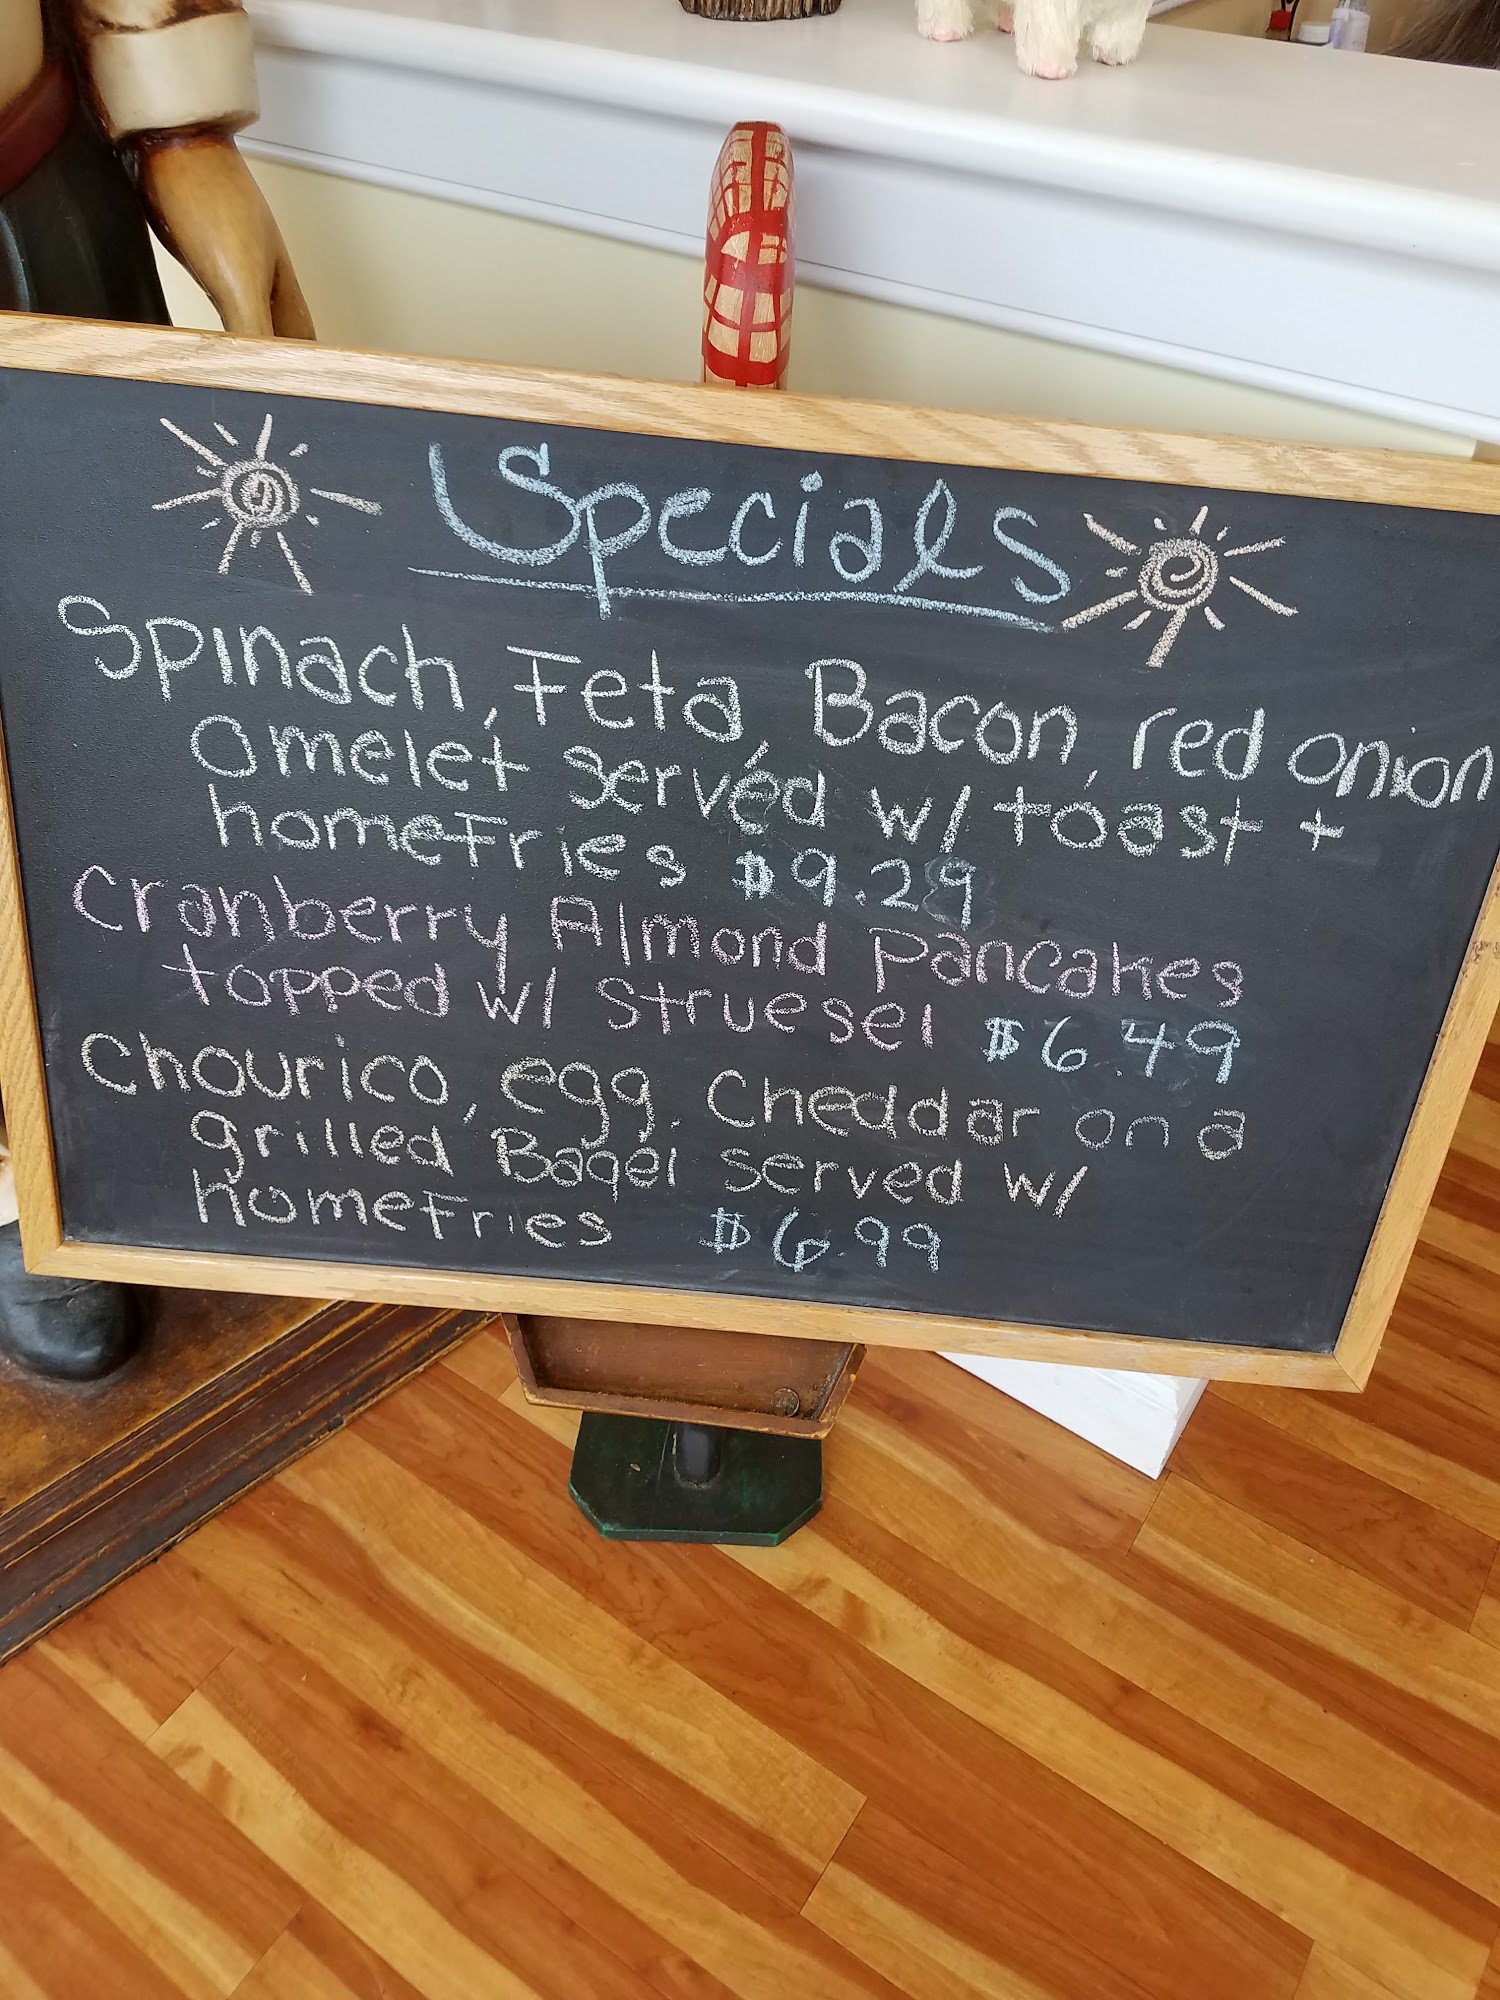 Specials
Spinach, Feta, Bacon, red onion
omelet served w/ toast +
homefries $9.29
Cranberry Almond pancakes
topped w/ struesel $6.49
Chourico, egg, Cheddar on a
grilled Bagel served w/
homefries $6.99